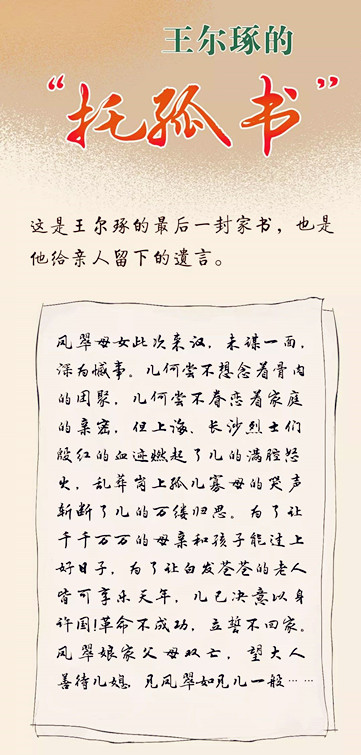 王尔琢的
“托孤书”
这是王尔琢的最后一封家书，也是
他给亲人留下的遗言。
凤翠母女此次来汉，未谋一面，
深为憾事。儿何尝不想念着骨肉
的团聚，儿何尝不眷恋着家庭
的亲密，但上海、长沙烈士们
殷红的血迹燃起了儿的满腔怒
火，乱葬岗上孤儿寡母的哭声
斩断了儿的万缕归思。为了让
千千万万的母亲和孩子能过上
好日子，为了让白发苍苍的老人
皆可享乐天年，儿已决意以身
许国！革命不成功，立誓不回家。
凤翠娘家父母双亡，望大人
善待儿媳，见凤翠如见儿一般……